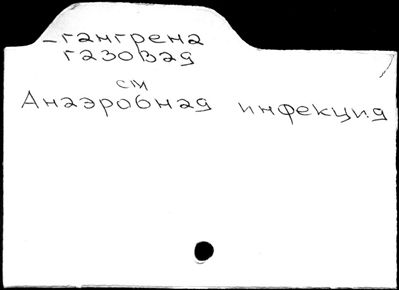 – гангрена
газовая
см
Анаэробная инфекция